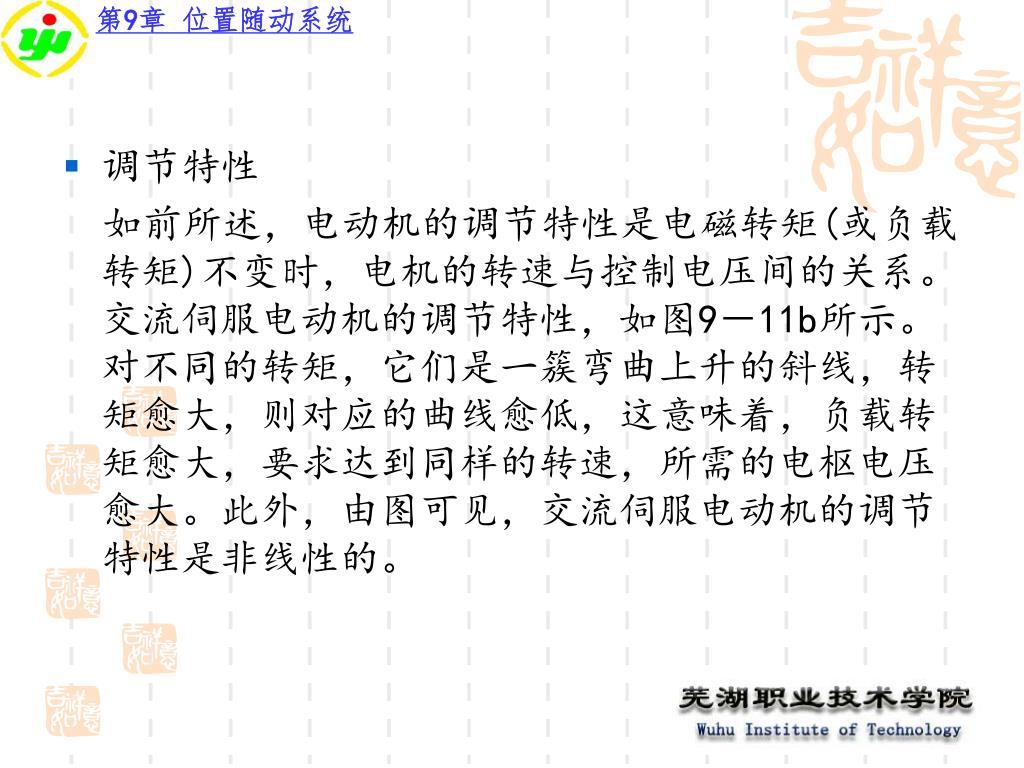 第9章 位置随动系统
吉祥如意
调节特性
如前所述，电动机的调节特性是电磁转矩(或负载
转矩)不变时，电机的转速与控制电压间的关系。
交流伺服电动机的调节特性，如图9－11b所示。
对不同的转矩，它们是一簇弯曲上升的斜线，转
矩愈大，则对应的曲线愈低，这意味着，负载转
矩愈大，要求达到同样的转速，所需的电枢电压
愈大。此外，由图可见，交流伺服电动机的调节
特性是非线性的。
吉祥如意
吉祥如意
吉祥如意
吉祥如意
吉祥如意
吉祥如意
芜湖职业技术学院
Wuhu Institute of Technology